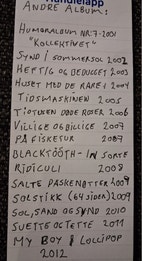 Handleapp
ANDRE ALBUM:
HUMORALBUM NR:7-2001
"KOLLEKTIVET"
SYND I SOMMERSOL 2002
HEFTIG OG BEDUGGET 2003
HUSET MED DE RARE I 2004
TIDSMASKINEN 2005
TIOTUSEN RÖDE ROSER 2006
VILLIGE OG BILLIGE 2007
PÅ FISKETUR 2007
BLACKTÖÖTH-IN SORTE
RIDICULI 2008
SALTE PASKENØTTER 2009
SOLSTIKK (64 SIDEN) 2009
SOL, SAND OG SYND 2010
SVETTE OCTETTE 2011
MY BOY LOLLIPOP
2012